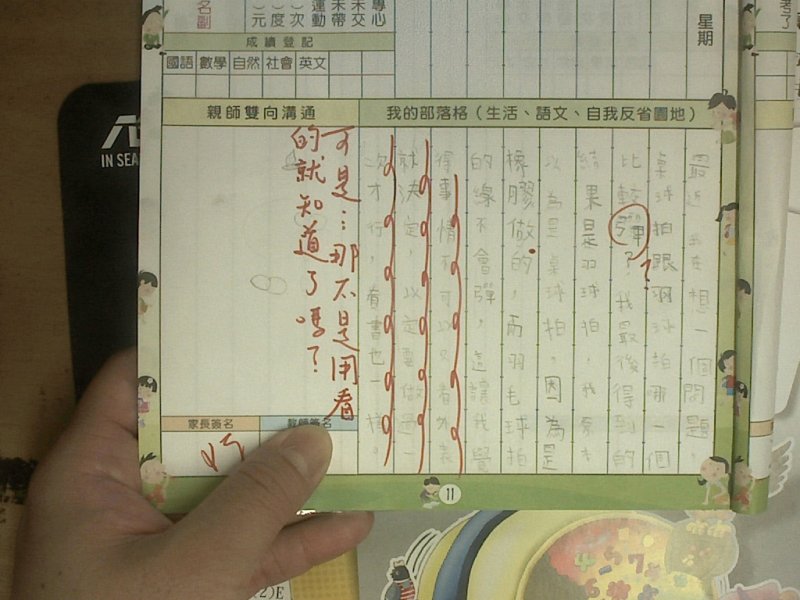 專心
未交
未帶
運動
(  )次
(  )度
(  )元
名副
星期
成績登記
國語 數學 自然 社會 英文
親師雙向溝通
我的部落格（生活、語文、自我反省園地）
最近我在想一個問題，
桌球拍跟羽球拍哪一個
比較彈？我最後得到的
結果是羽球拍，我原本
以為是桌球拍，因為是
橡膠做的，而羽毛球拍
的線不會彈，這讓我覺
得事情不可以只看外表
就決定，以定要做過一
次才行，看書也一樣。
?
可是…那不是用看
的就知道了嗎？
家長簽名
教師簽名
11
IN SEA
(2)E